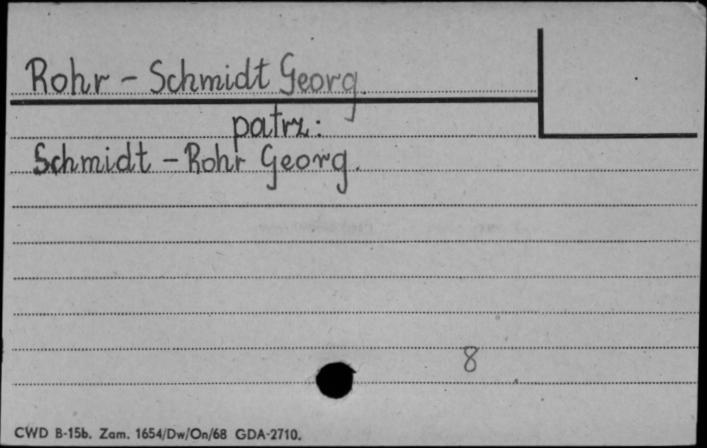 Rohr - Schmidt Georg.
patrz:
Schmidt - Rohr Georg.
8
CWD B-15b. Zam. 1654/Dw/On/68 GDA-2710.